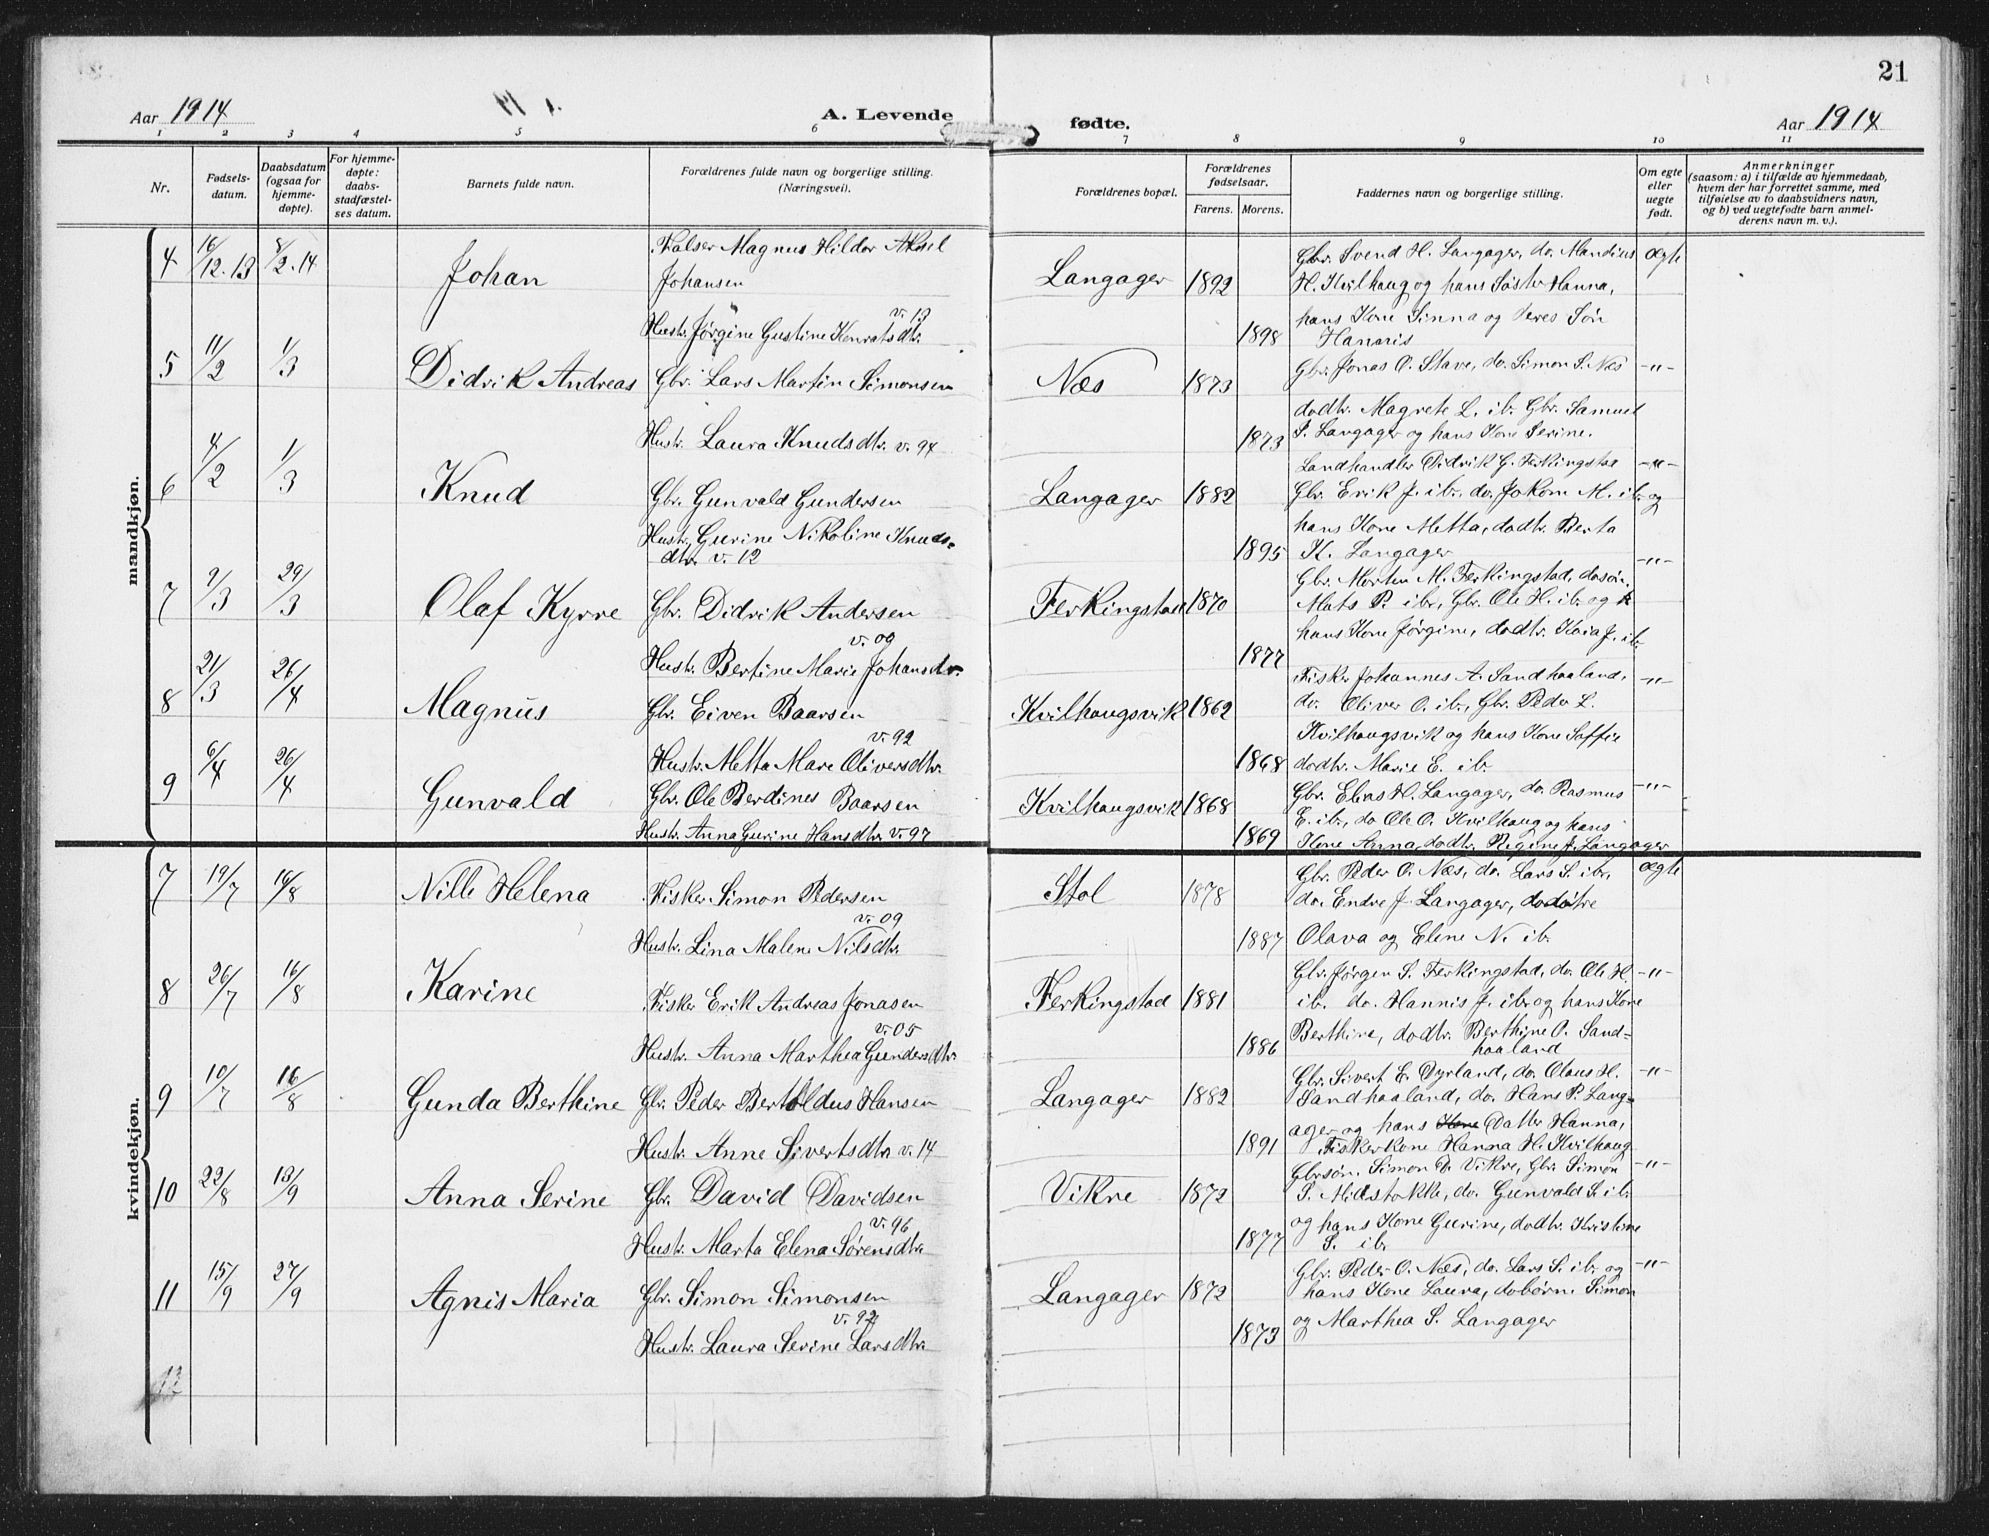 21
Aar 1914
A. Levende
fødte.
Aar 1914
1 2 3 4 5 6 7 8 9 10 11
Nr.
Fødsels-
datum.
Daabsdatum
(ogsaa for
hjemme-
døpte).
For hjemme-
døpte:
daabs-
stadfæstel-
ses datum.
Barnets fulde navn.
Forældrenes fulde navn og borgerlige stilling.
(Næringsvei).
Forældrenes bopæl.
Forældrenes
fødselsaar.
Farens. Morens.
Faddernes navn og borgerlige stilling.
Om egte
eller
uegte
født.
Anmerkninger
(saasom: a) i tilfælde av hjemmedaab,
hvem der har forrettet samme, med
tilføielse av to daabsvidners navn,
og b) ved uegtefødte barn anmel-
derens navn m. v.).
mandkjøn.
4 16/12.13 8/2.14 Johan
Falser Magnus Hilder Aksel
Johansen
v. 13
Hustr. Jørgine Gustine Kenratsdtr.
Langager 1892
1898
Gbr. Svend H. Langager, do. Mandius
H. Kvilhaug og hans Søster Hanna,
hans Kone Sinna og deres Søn
Hannis
Ægte
5 11/2 1/3 Didrik Andreas
Gbr. Lars Martin Simonsen
Hustr. Laura Knudsdtr. v. 94
Næs 1873
1873
Gbr. Jonas O. Stave, do. Simon S. Næs
dodtr. Magrete L. ib. Gbr. Samuel
S. Langager og hans Kone Serine.
-"-
6 4/2 1/3 Knud
Gbr. Gunvald Gundersen
Hustr. Gurine Nikoline Knuds-
dtr. v. 12
Langager 1882
1895
Landhandler Didrik G. Ferkingstad
Gbr. Erik J. ib., do. Jokom M. ib. og
hans Kone Metta, dodtr. Berta
K. Langager
-"-
7 9/3 29/3 Olaf Kyrre
Gbr. Didrik Andersen
v. 09
Hustr. Bertine Marie Johansdtr.
Ferkingstad 1870
1877
Gbr. Morten M. Ferkingstad, dosøn.
Mats P. ib., Gbr. Ole H. ib. og
hans Kone Jørgine, dodtr. Kaia J. ib.
-"-
8 21/3 26/4 Magnus
Gbr. Eiven Baarsen
v. 92
Hustr. Metta Mare Oliversdtr.
Kvilhaugsvik 1862
1868
Fisker Johannes A. Sandhaaland,
do. Oliver O. ib., Gbr. Peder L.
Kvilhaugsvik og hans Kone Soffie
dodtr. Marie E. ib.
-"-
9 6/4 26/4 Gunvald
Gbr. Ole Berdines Baarsen
Hustr. Anna Gurine Hansdtr. v. 97
Kvilhaugsvik 1868
1869
Gbr. Elias H. Langager, do. Rasmus
E. ib., do Ole O. Kvilhaug og hans
Kone Anna, dodtr. Regine J. Langager
-"-
kvindekjøn.
7 19/7 16/8 Nille Helena
Fisker Simon Pedersen
v. 09
Hustr. Lina Malene Nilsdtr.
Stol 1878
1887
Gbr. Peder O. Næs, do. Lars S. ib.,
do. Endre J. Langager, dodøtre
Olava og Elene N. ib.
Ægte
8 26/7 16/8 Karine
Fisker Erik Andreas Jonasen
v. 05
Hustr. Anna Marthea Gundersdtr.
Ferkingstad 1881
1886
Gbr. Jørgen S. Ferkingstad, do. Ole H.
ib. do. Hannis J. ib. og hans Kone
Berthine, dodtr. Berthine O. Sand-
haaland
-"-
9 10/7 16/8 Gunda Berthine
Gbr. Peder Bertoldus Hansen
Hustr. Anne Sivertsdtr. v. 14
Langager 1882
1891
Gbr. Sivert E. Tyrland, do. Olaus H.
Sandhaaland, do. Hans P. Lang-
ager og hans Kone Datter Hanna,
Fiskerkone Hanna H. Kvilhaug
-"-
10 22/8 13/9 Anna Serine
Gbr. David Davidsen
v. 96
Hustr. Marta Elena Sørensdtr.
Vikre 1872
1877
Gbrsøn. Simon D. Vikre, Gbr. Simon
S. Midstokke, do. Gunvald S. ib.
og hans Kone Gurine, dodtr. Kristine
S. ib.
-"-
11 15/9 27/9 Agnis Maria
Gbr. Simon Simonsen
v. 92
Hustr. Laura Serine Larsdtr.
Langager 1872
1873
Gbr. Peder O. Næs, do. Lars S. ib. og
hans Kone Laura, dobørn Simon
og Marthea S. Langager
-"-
12